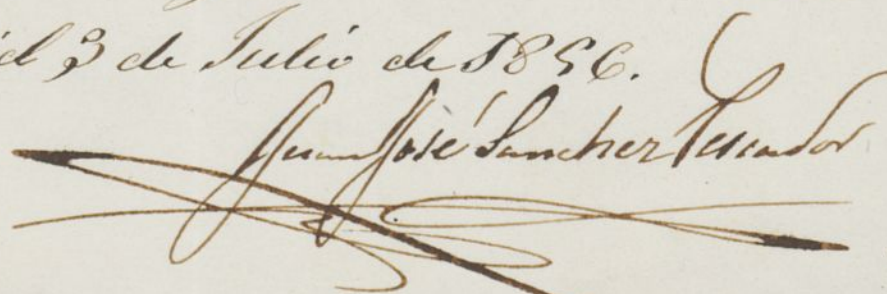 id 3 de Julio de 1856.
Juan José Sanchez Pescador